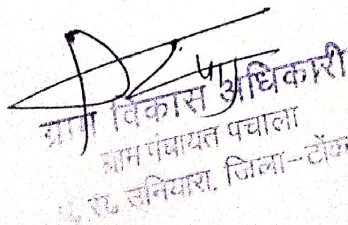 ग्राम विकास अधिकारी
ग्राम पंचायत पचाला
पं. स. उनियारा, जिला-टोंक